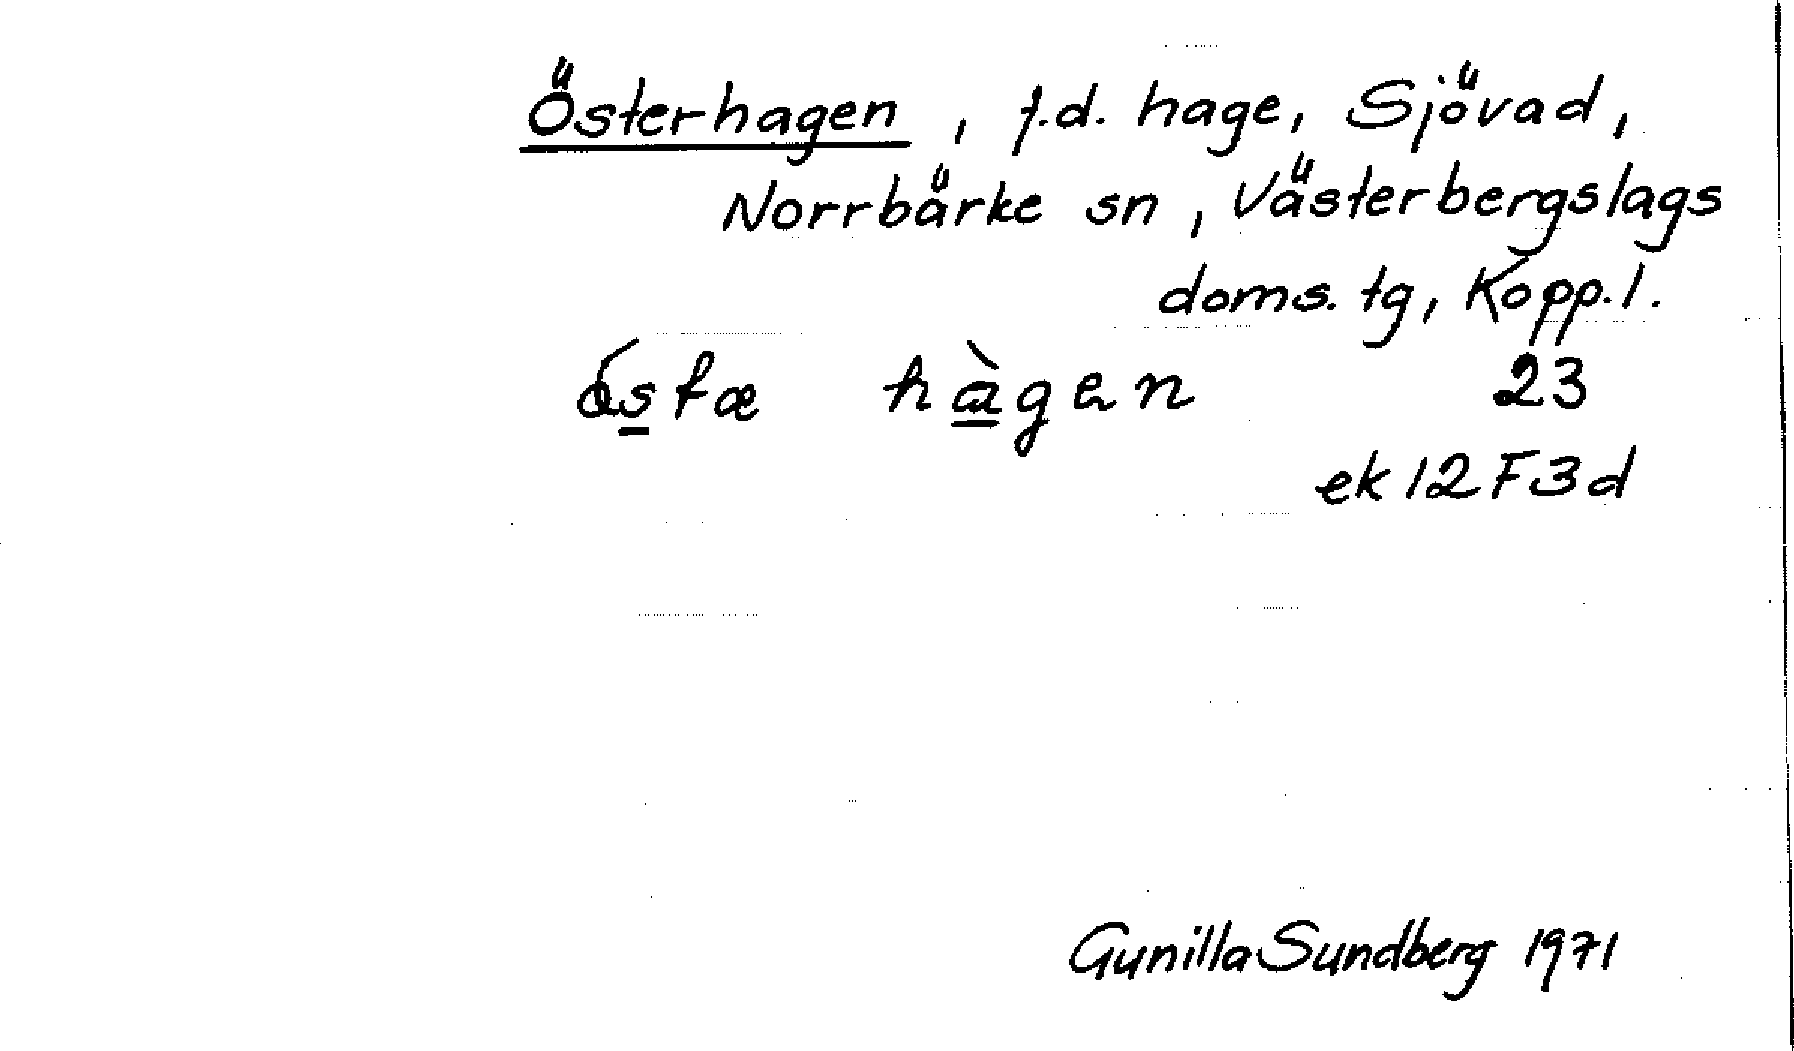 Österhagen, f.d. hage, Sjövad,
Norrbärke sn, Västerbergslags
doms. tg, Kopp. l.
hàgen 23
ek 12F3d
Gunilla Sundberg 1971